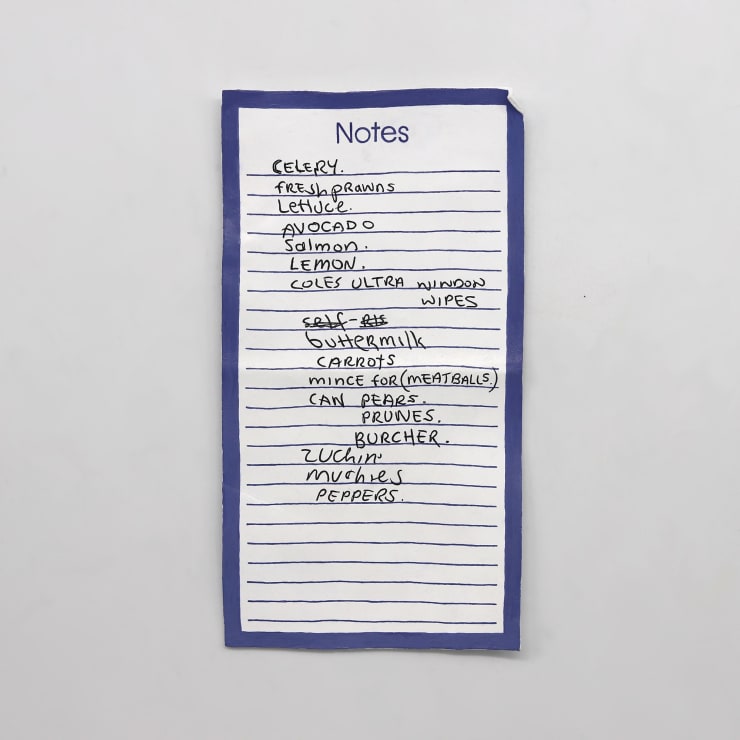 Notes
CELERY.
FRESh pRAWNS
Lettuce.
AVOCADO
Salmon.
LEMON.
COLES ULTRA WINDOW
WIPES
self-RIS
buttermilk
CARROTS
MINCE FOR (MEATBALLS.)
CAN PEARS.
PRUNES.
BURCHER.
ZUChini
Muchies
PEPPERS.